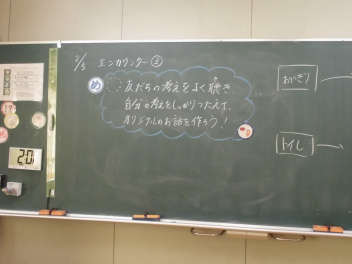 2/3 エンカウンター③
め
友だちの考えをよく聴き
自分の考えをしっかりつたえて、
オリジナルのお話を作ろう!
おにぎり
トイレ
20